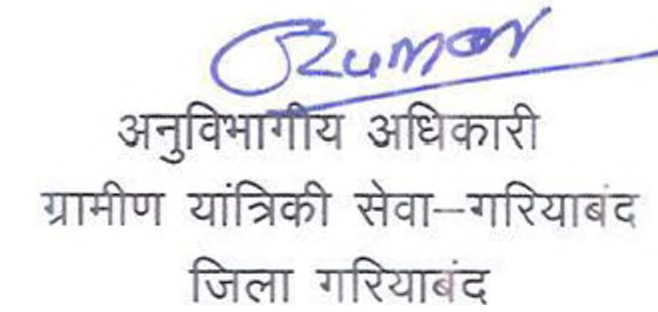 अनुविभागीय अधिकारी
ग्रामीण यांत्रिकी सेवा–गरियाबंद
जिला गरियाबंद